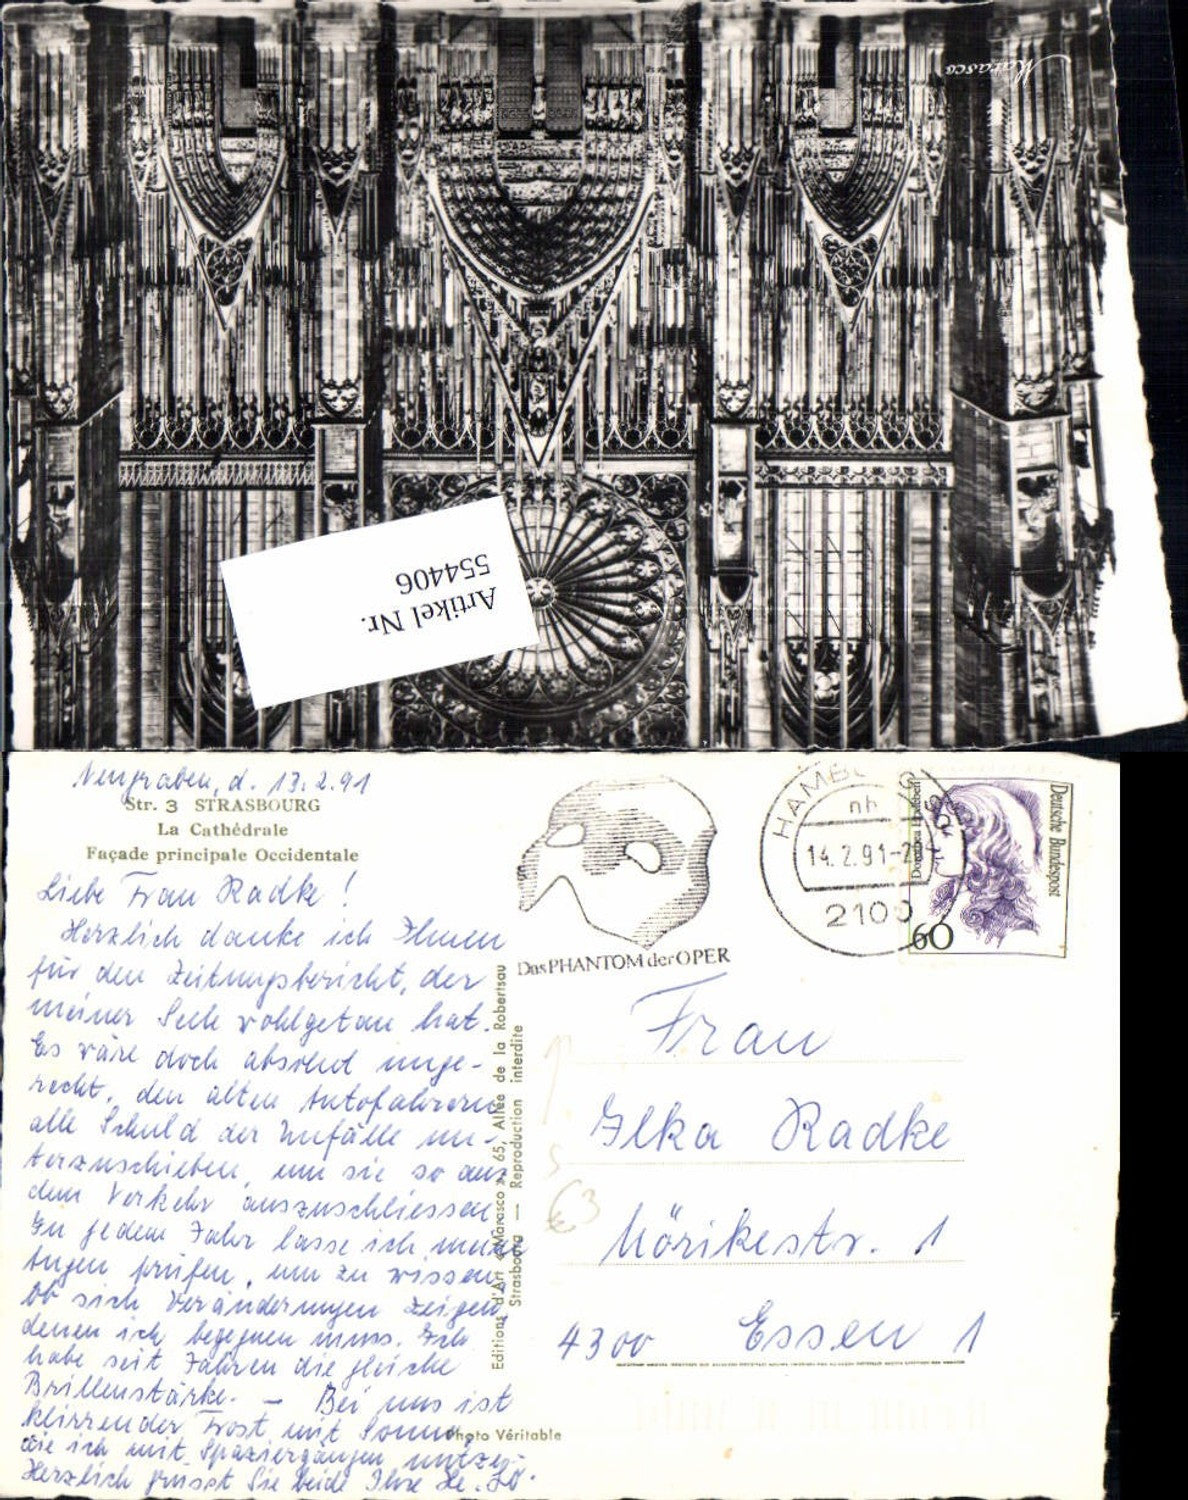 Marasco
Artikel Nr.
554406
Neugraben, d. 13.2.91
Str. 3 STRASBOURG
La Cathédrale
Façade principale Occidentale
Liebe Frau Radke!
Herzlich danke ich Ihnen
für den Zeitungsbericht, der
meiner Seele wohlgetan hat.
Es wäre doch absolut unge-
recht, den alten Autofahrern
alle Schuld der Unfälle un-
terzuschieben, um sie so aus
dem Verkehr auszuschliessen.
In jedem Jahr lasse ich meine
Augen prüfen, um zu wissen,
ob sich Veränderungen zeigen,
denen ich begegnen muss. Ich
habe seit Jahren die gleiche
Brillenstärke. – Bei uns ist
klirrender Frost mit Sonne,
die ich mit Spaziergängen nutze.
Herzlich grüsst Sie beide Ihre
Editions d'Art « Marasco » 65, Allée de la Robertsau
Strasbourg — Reproduction interdite
Photo Véritable
Das PHANTOM der OPER
HAMBURG
nh
14.2.91-2
2100
Deutsche Bundespost
Dorothea Erxleben
60
Frau
Ilka Radke
Mörikestr. 1
4300 Essen 1
€3